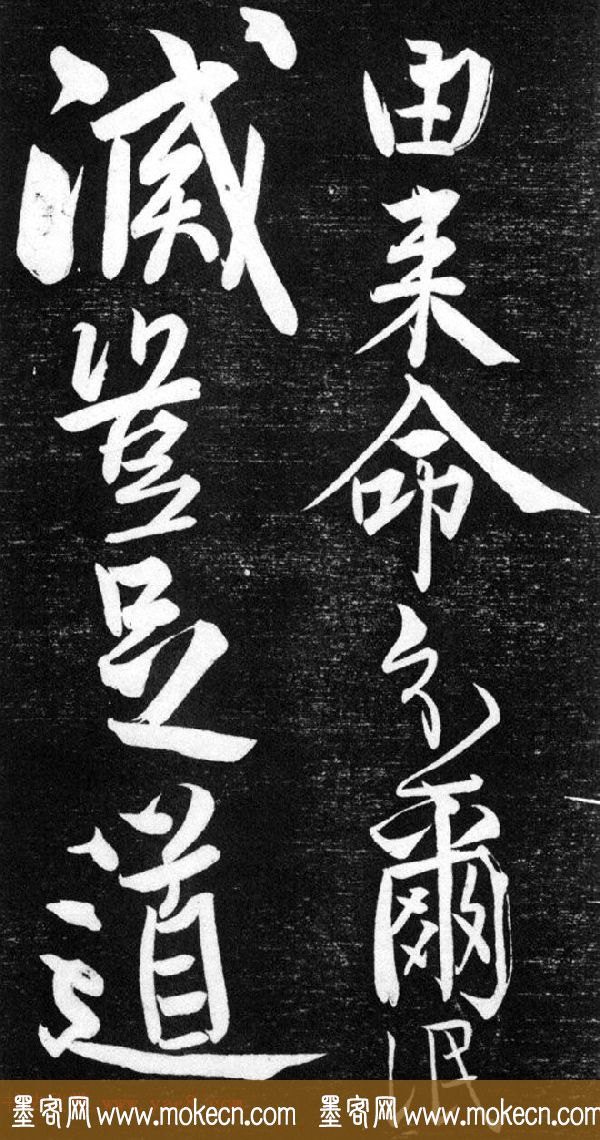 由来命分爾泯
滅豈足道
墨客网 www.mokecn.com 墨客网 www.mokecn.com